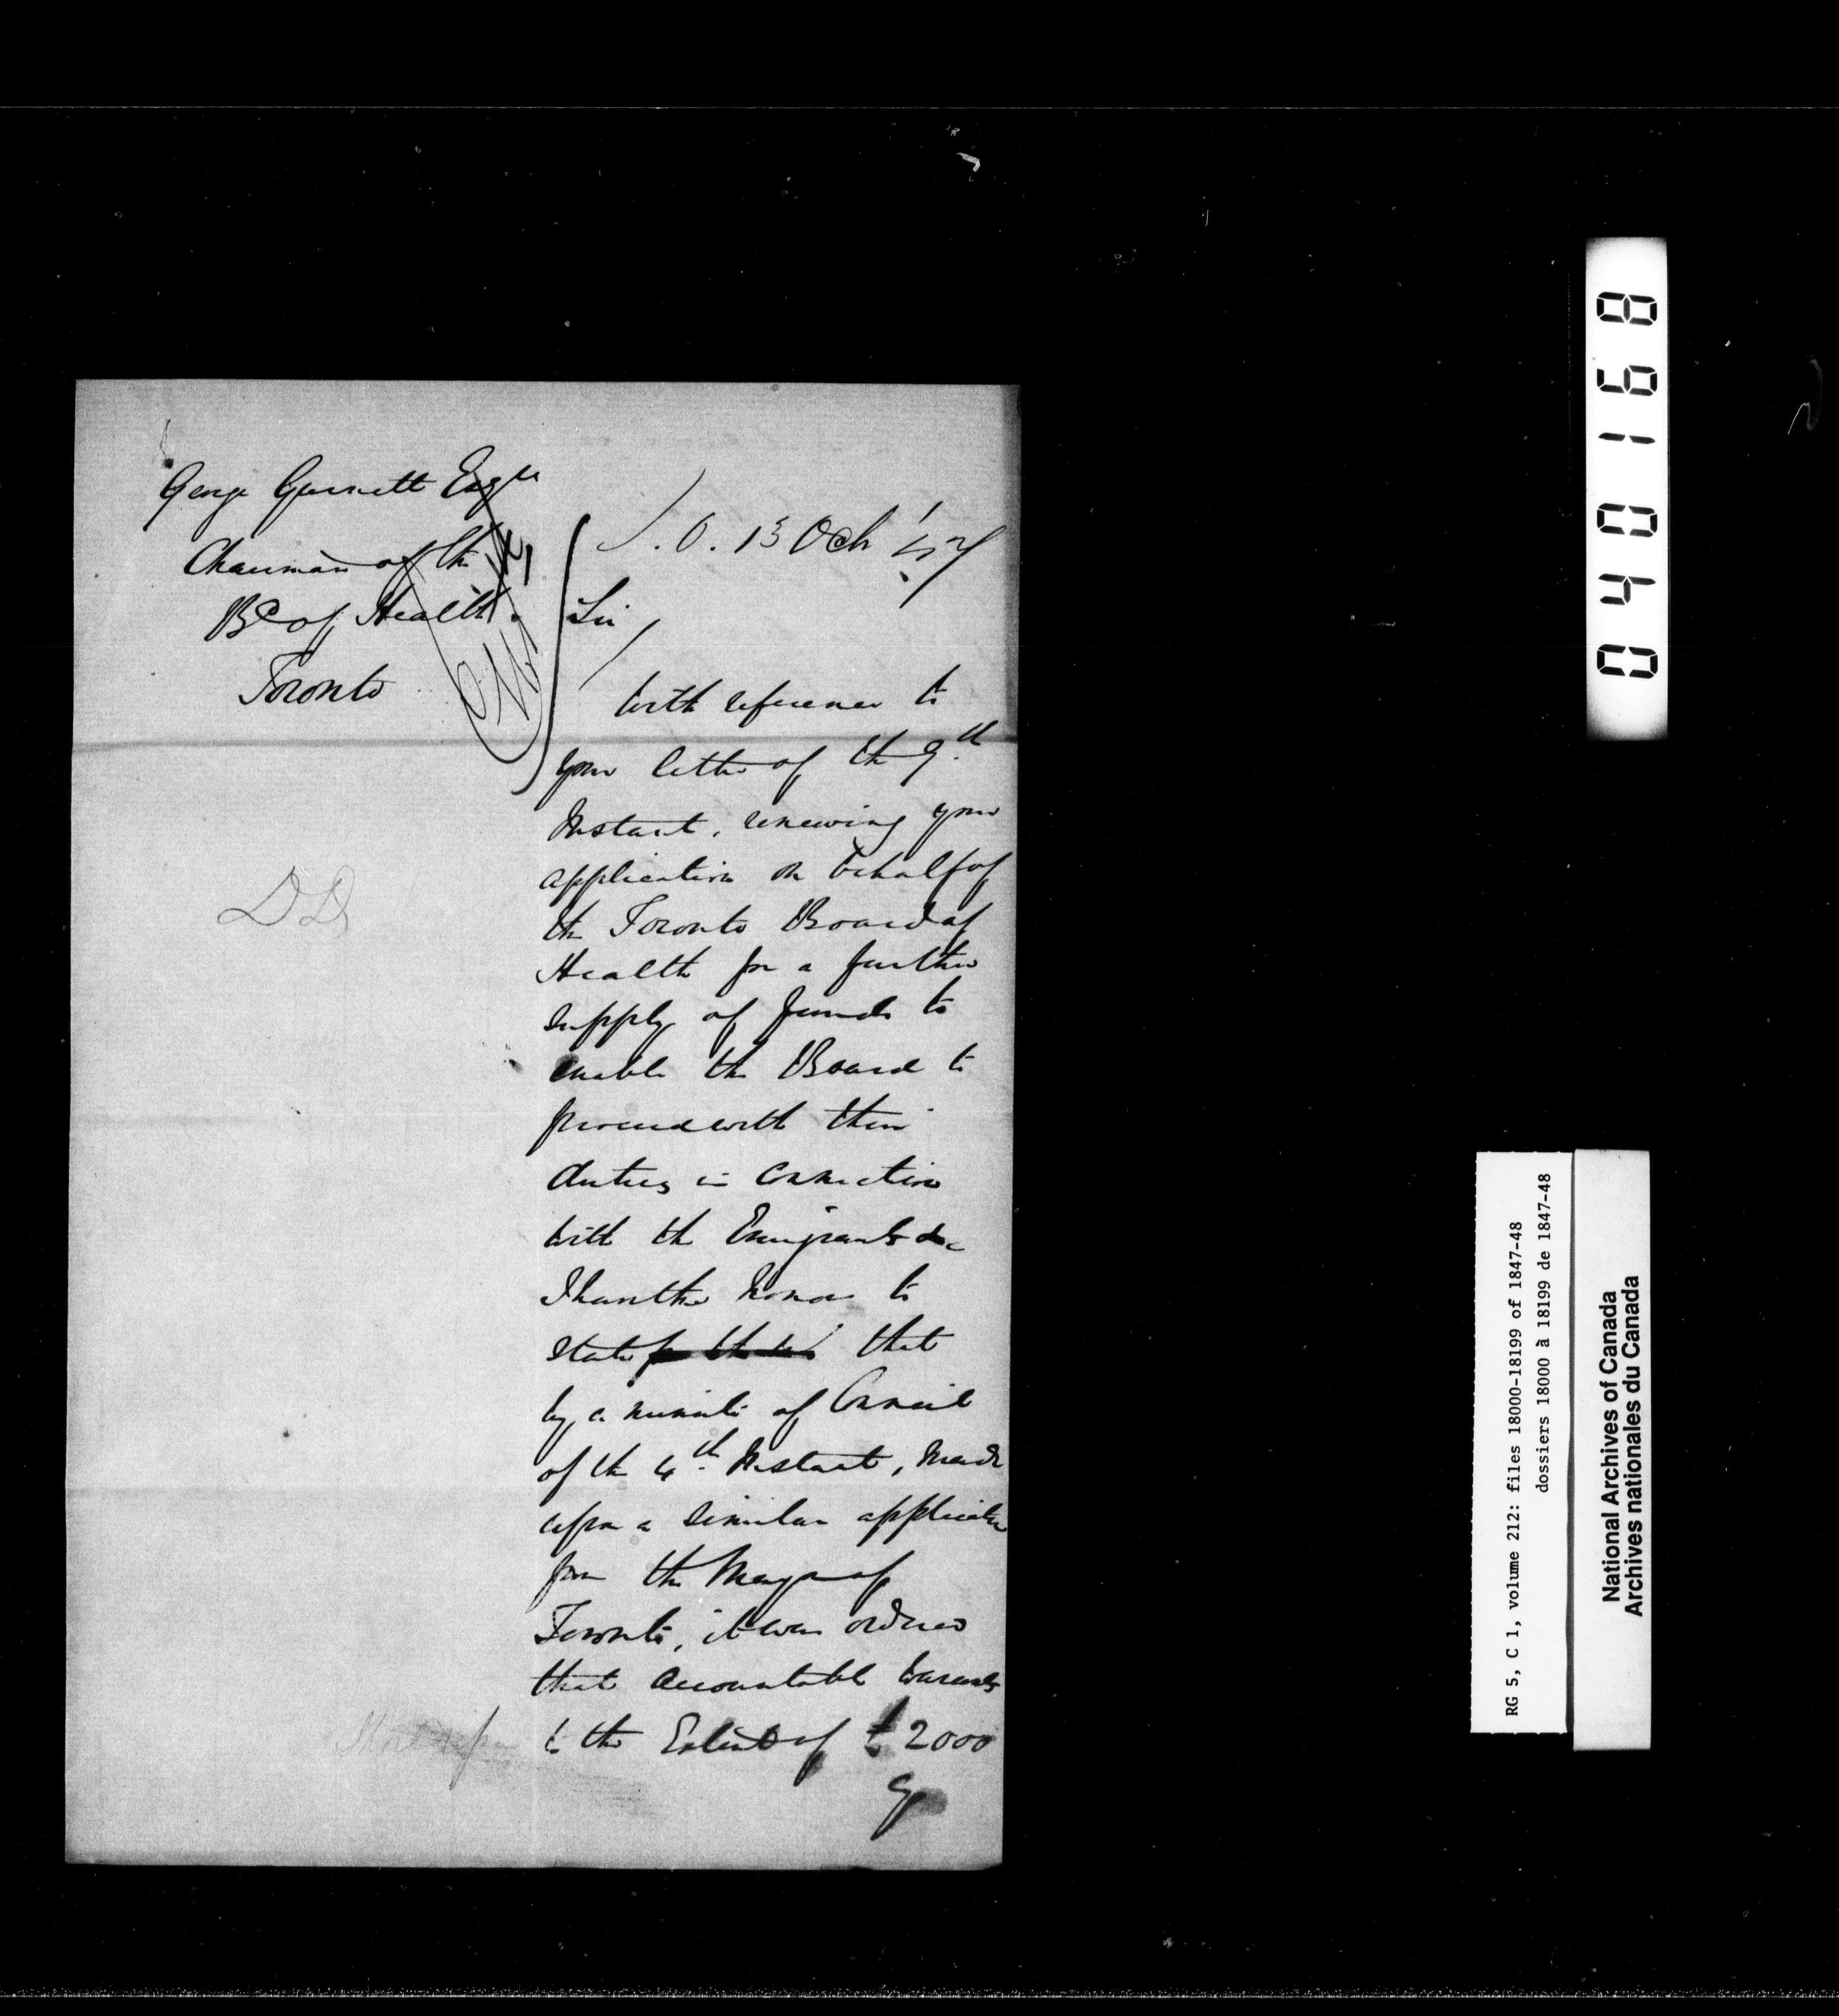 George Gurnett Esqre
Chairman of the
Bd of Health
Toronto
S.O. 13 Oct '47
Sir,
With reference to
your letter of the 9th
Instant, renewing your
application on behalf of
the Toronto Board of
Health for a further
supply of funds to
enable the Board to
proceed with their
duties in connection
with the Emigrants &c
I have the honor to
state that
by a minute of Council
of the 4th Instant, made
upon a similar application
from the Mayor of
Toronto, it was ordered
that accountable warrants
to the Extent of £2000
DD
040168
RG 5, C 1, volume 212: files 18000-18199 of 1847-48
dossiers 18000 à 18199 de 1847-48
National Archives of Canada
Archives nationales du Canada